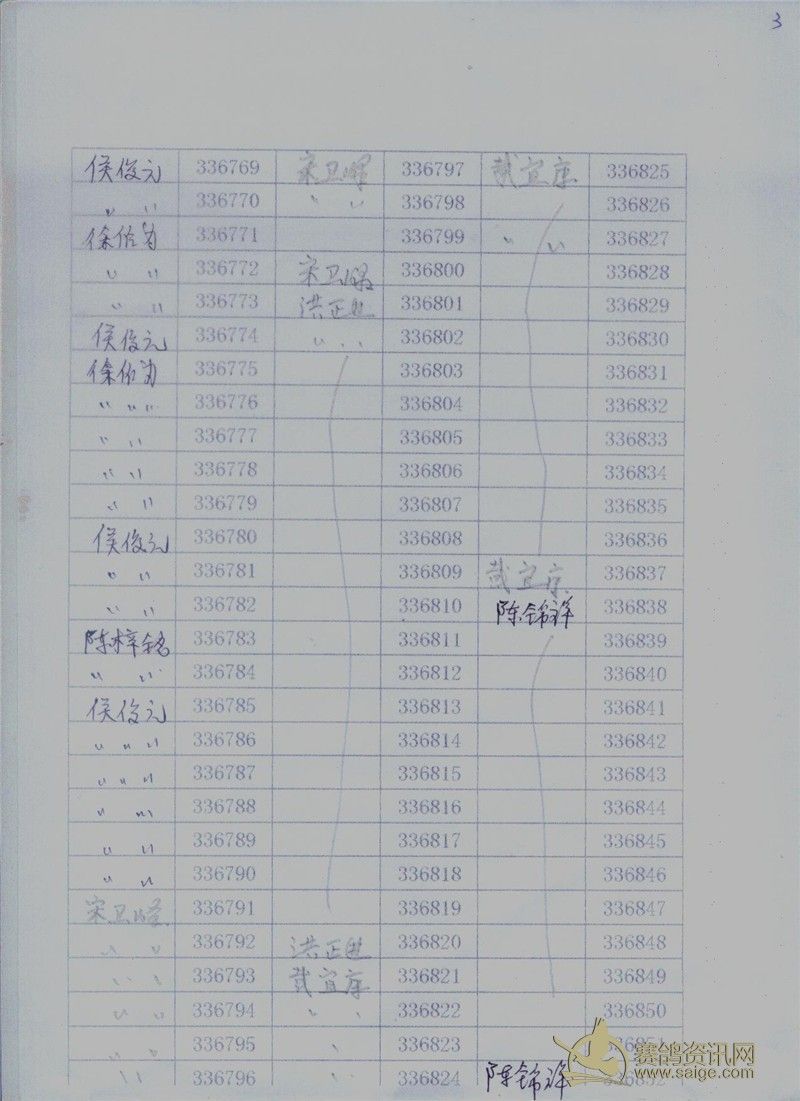 3
侯俊元 336769 宋卫峰 336797 戴宜康 336825
〃 〃 336770 〃 〃 336798 336826
徐佑为 336771 336799 〃 〃 336827
〃 〃 336772 宋卫峰 336800 336828
〃 〃 336773 洪正 336801 336829
侯俊元 336774 〃 〃 336802 336830
徐佑为 336775 336803 336831
〃 〃 336776 336804 336832
〃 〃 336777 336805 336833
〃 〃 336778 336806 336834
〃 〃 336779 336807 336835
侯俊元 336780 336808 336836
〃 〃 336781 336809 戴宜康 336837
〃 〃 336782 336810 陈锦祥 336838
陈梓铭 336783 336811 336839
〃 〃 336784 336812 336840
侯俊元 336785 336813 336841
〃 〃 〃 336786 336814 336842
〃 〃 〃 336787 336815 336843
〃 〃 336788 336816 336844
〃 〃 336789 336817 336845
〃 〃 336790 336818 336846
宋卫峰 336791 336819 336847
〃 〃 336792 洪正 336820 336848
〃 〃 336793 戴宜康 336821 336849
〃 〃 336794 〃 〃 336822 336850
〃 〃 336795 〃 336823 336851
〃 〃 336796 〃 336824 陈锦祥 336852
赛鸽资讯网
www.saige.com